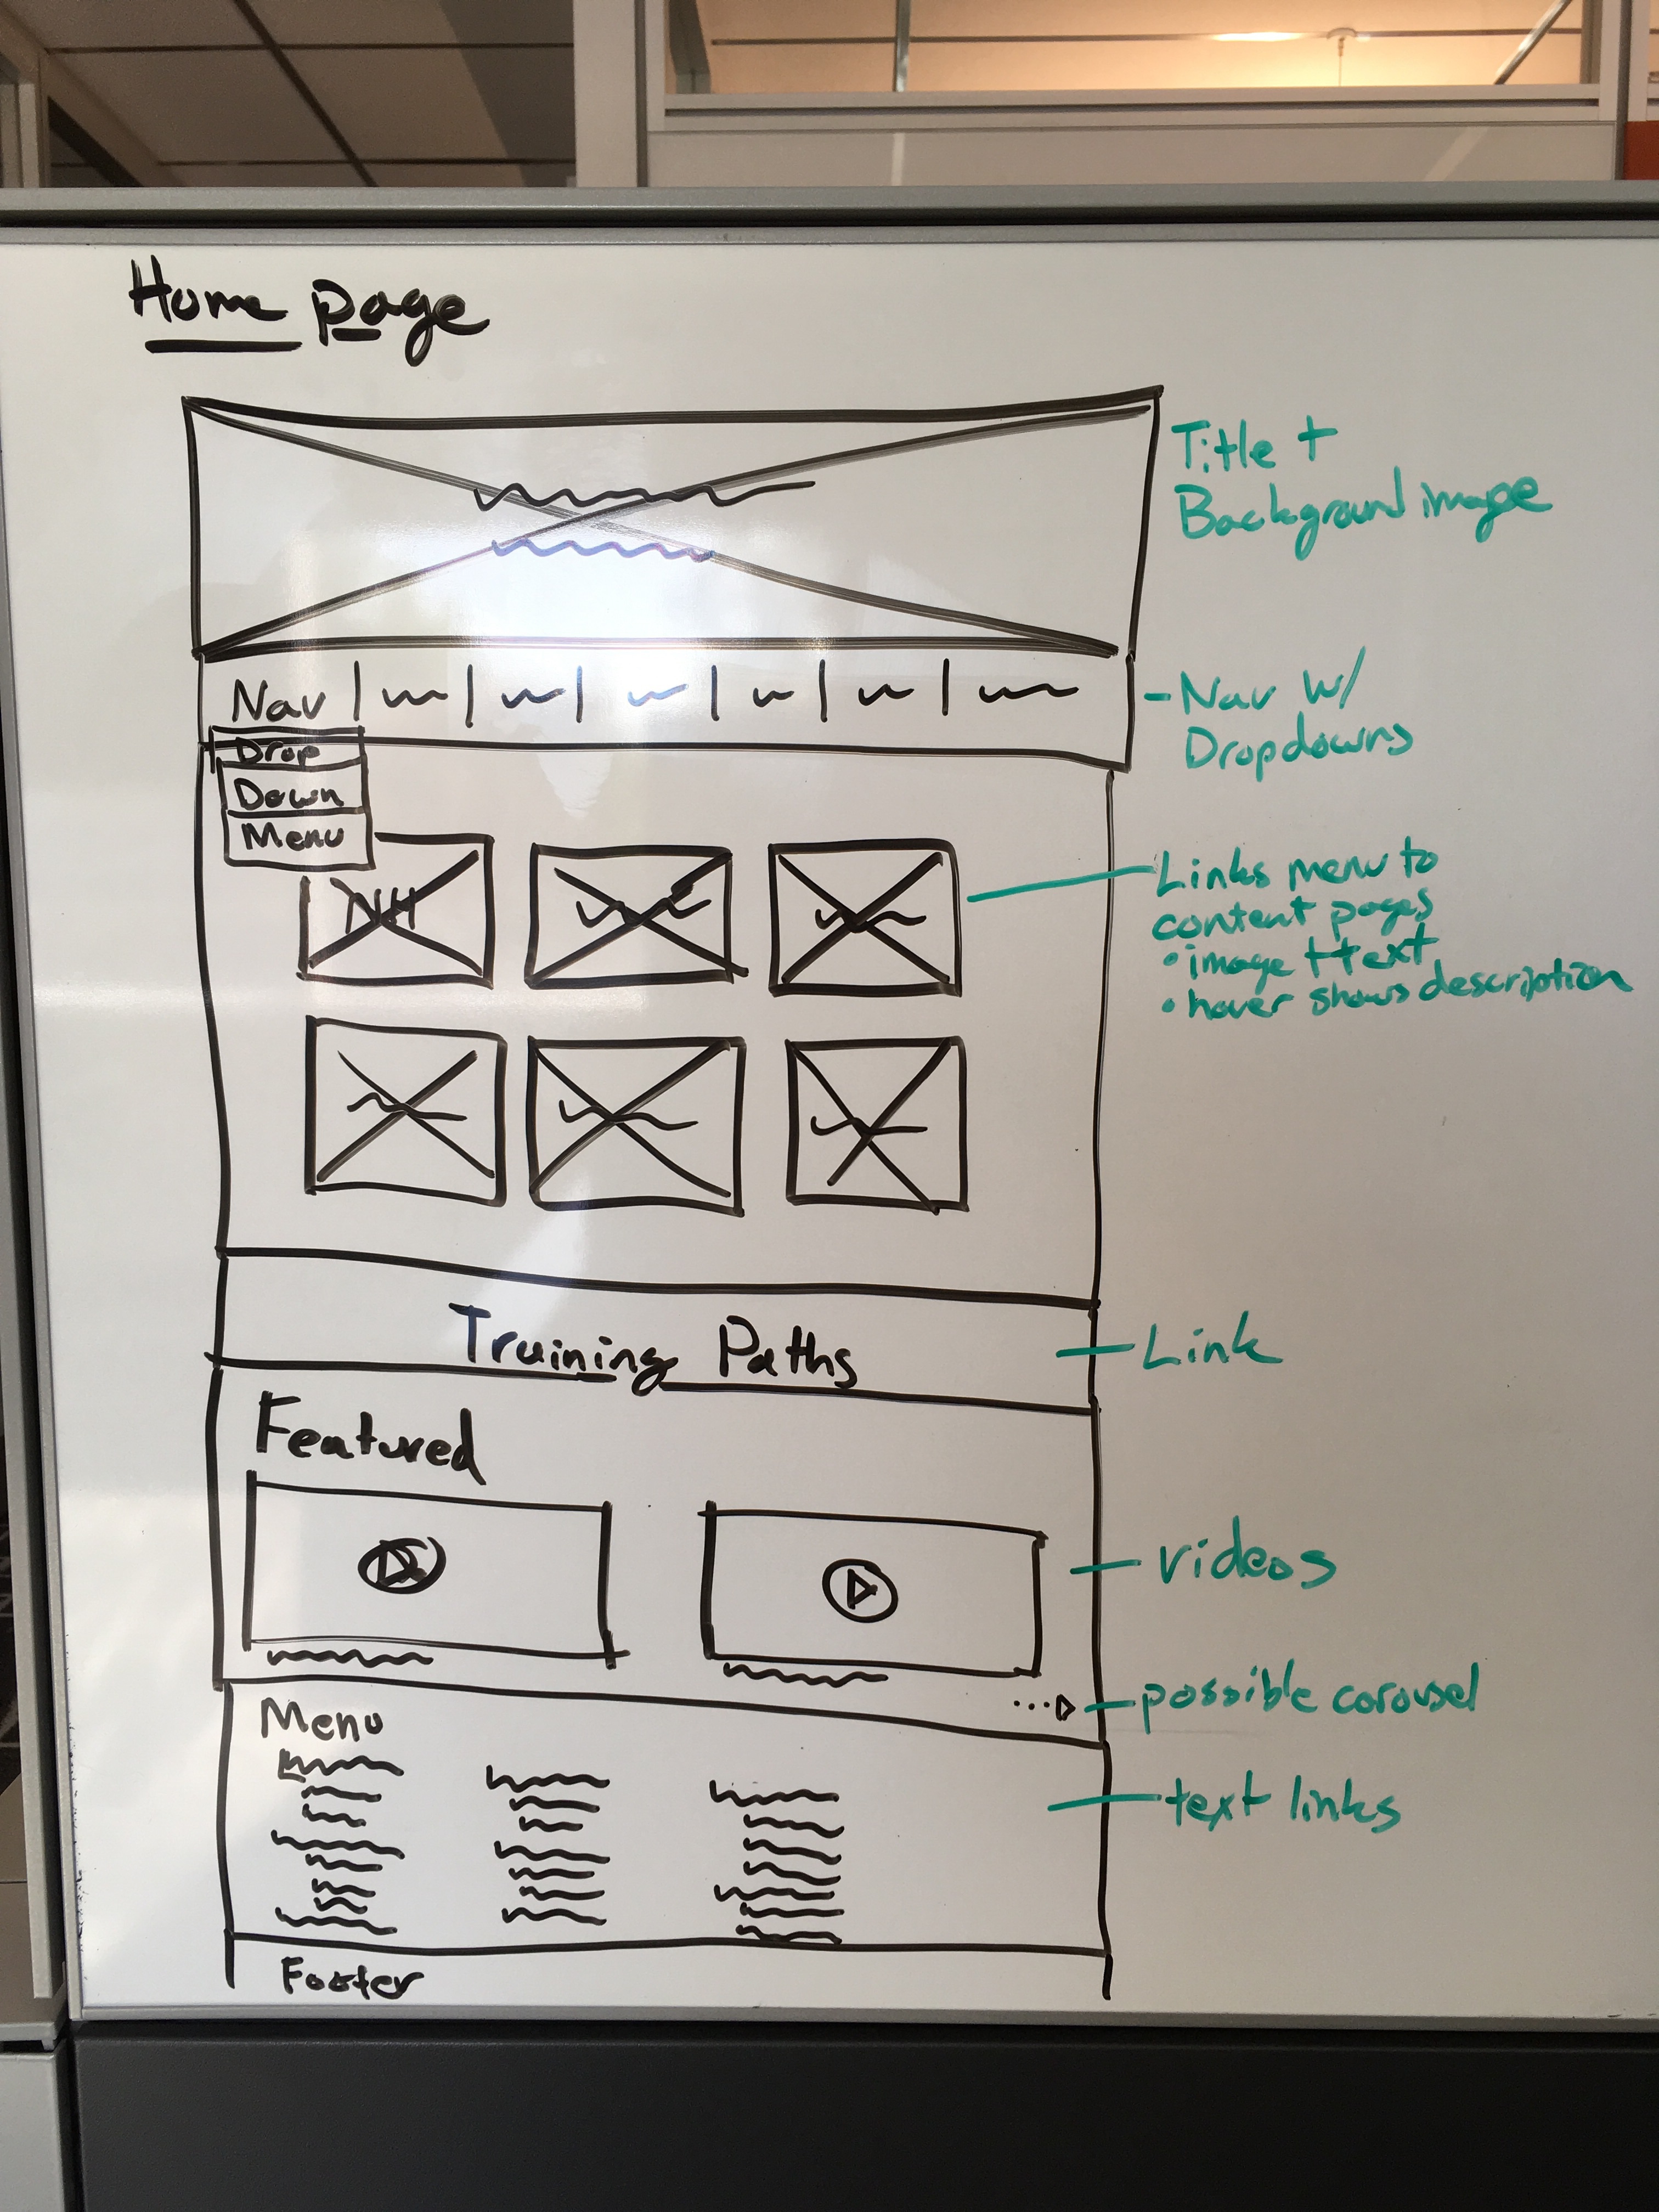 Home page
Title +
Background image
Nav
- Nav w/
Dropdowns
Drop
Down
Menu
Links menu to
content pages
• image + text
• hover shows description
Training Paths
Link
Featured
videos
possible carousel
Menu
text links
Footer